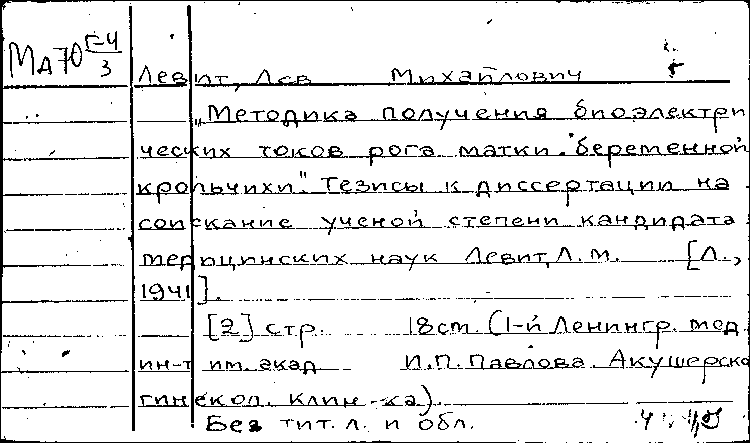 Мд70 Г-4/3
Левит, Лев Михайлович
"Методика получения биоэлектри
ческих токов рога матки беременной
крольчихи". Тезисы к диссертации на
соискание ученой степени кандидата
медицинских наук Левит, Л.М. [Л.,
1941].
[2] стр. 18см. (1-й Ленингр. мед.
ин-т им. акад И.П. Павлова. Акушерско
гинекол. клин-ка).
Без тит. л. и обл.